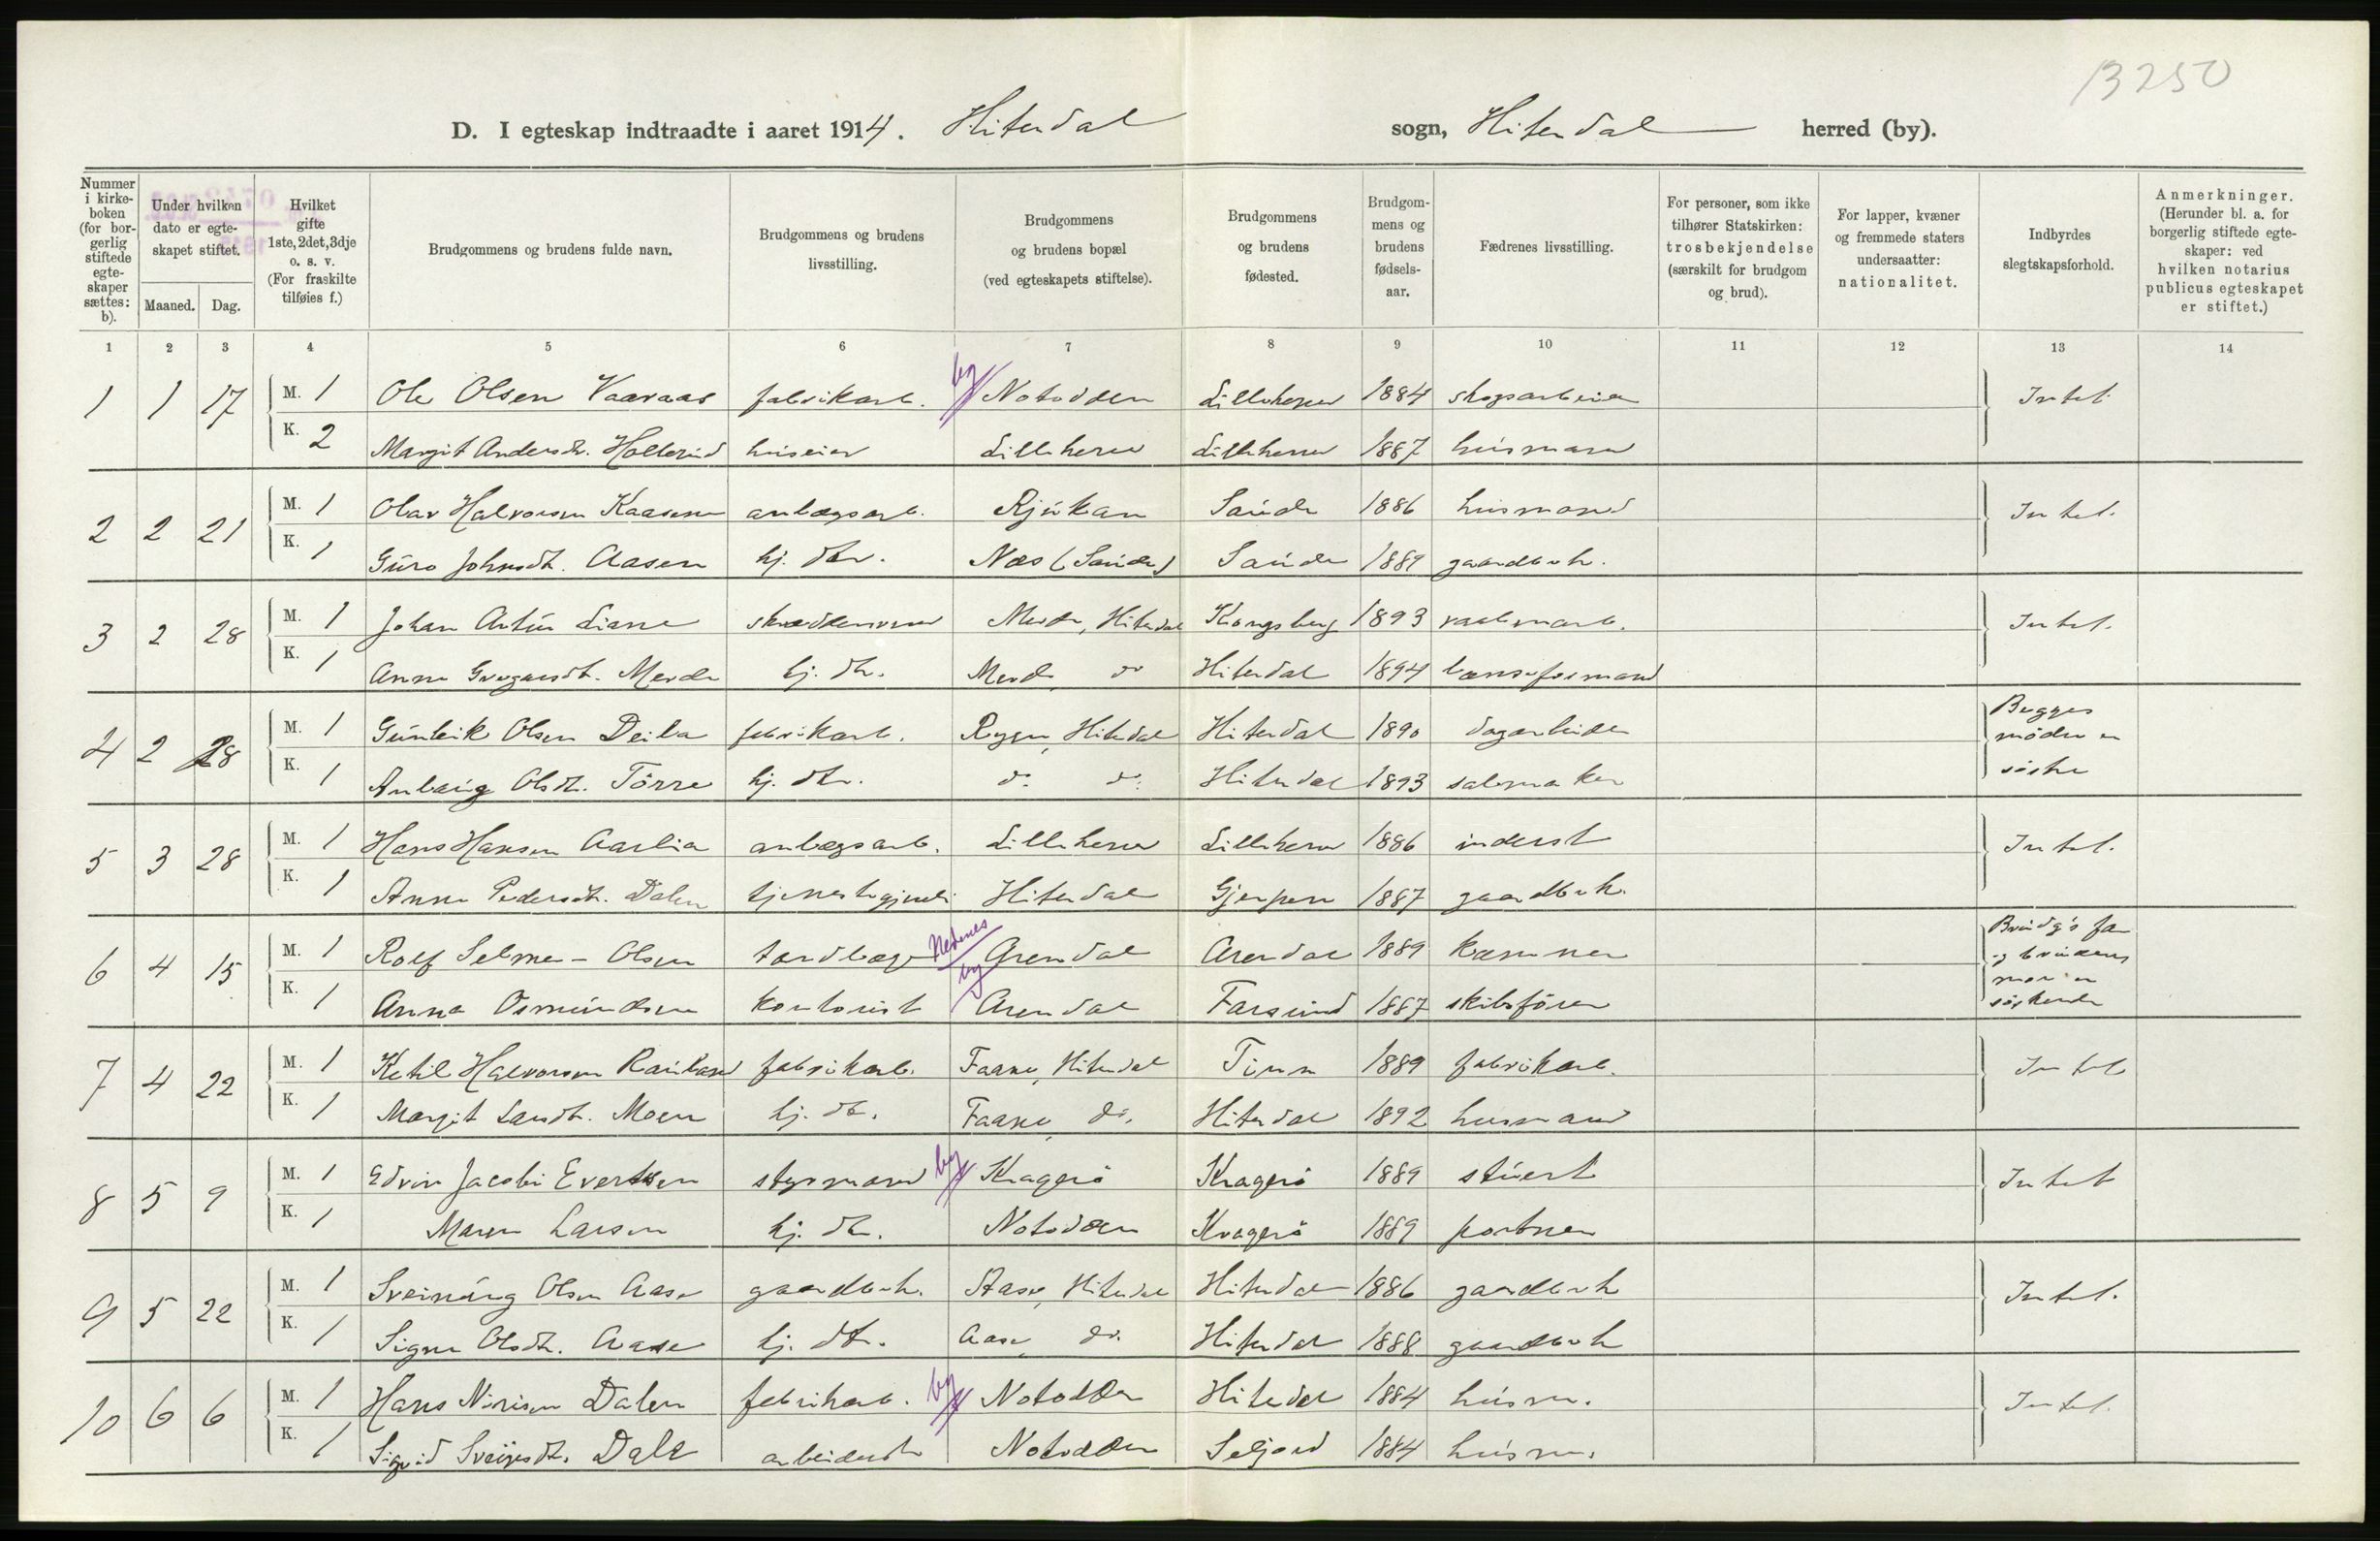 13250
D. I egteskap indtraadte i aaret 1914. Hiterdal sogn, Hiterdal herred (by).
Nummer i kirke-boken (for bor-gerlig stiftede egte-skaper sættes: b).
Under hvilken dato er egte-skapet stiftet.
Maaned. Dag.
Hvilket gifte 1ste, 2det, 3dje o. s. v. (For fraskilte tilføies f.)
Brudgommens og brudens fulde navn.
Brudgommens og brudens livsstilling.
Brudgommens og brudens bopæl (ved egteskapets stiftelse).
Brudgommens og brudens fødested.
Brudgom-mens og brudens fødsels-aar.
Fædrenes livsstilling.
For personer, som ikke tilhører Statskirken: trosbekjendelse (særskilt for brudgom og brud).
For lapper, kvæner og fremmede staters undersaatter: nationalitet.
Indbyrdes slegtskapsforhold.
Anmerkninger. (Herunder bl. a. for borgerlig stiftede egte-skaper: ved hvilken notarius publicus egteskapet er stiftet.)
1 2 3 4 5 6 7 8 9 10 11 12 13 14
1 1 17 M. 1 Ole Olsen Vaaraas fabrikarb. by Notodden Lilleherred 1884 skogsarbeider Intet
K. 2 Margit Andersdt. Hollerud huseier Lilleherred Lilleherred 1887 husmand
2 2 21 M. 1 Olav Halvorsen Kaasene anlægsarb. Rjukan Saude 1886 husmand Intet.
K. 1 Guro Johnsdt. Aasen hj. dtr. Næs (Saude) Saude 1889 gaardbruk.
3 2 28 M. 1 Johan Artur Liane skræddersvend Merde, Hiterdal Kongsberg 1893 Intet.
K. 1 Anne Gregarsdt. Merde hj. dtr. Merde do Hiterdal 1894 lænseformand
4 2 28 M. 1 Gunleik Olsen Deila fabrikarb. Rygen, Hiterdal Hiterdal 1890 dagarbeider Begges mødre er søstre
K. 1 Anlaug Olsdt. Tørre hj. dtr. do. do. Hiterdal 1893 salmaker
5 3 28 M. 1 Hans Hansen Aarlia anlægsarb. Lilleherred Lilleherred 1886 inderst Intet.
K. 1 Anne Pedersdt. Dalen tjenestegjente Hiterdal Gjerpen 1887 gaardbruk.
6 4 15 M. 1 Rolf Selmer-Olsen tandlæge Nedenes Arendal Arendal 1889 kæmner Brudg's far og brudens mor er søskende
K. 1 Anna Osmundsen kontorist by Arendal Farsund 1887 skibsfører
7 4 22 M. 1 Ketil Halvorsen Raukasa fabrikarb. Faane, Hiterdal Tinn 1889 fabrikarb. Intet
K. 1 Margit Larsdt. Moen hj. dtr. Faane, do. Hiterdal 1892 husmand
8 5 9 M. 1 Edvin Jacobi Evertsen styrmand by Kragerø Kragerø 1889 stuert Intet
K. 1 Maren Larsen hj. dtr. Notodden Kragerø 1889 portner
9 5 22 M. 1 Sveinung Olsen Aase gaardbruk. Aase, Hiterdal Hiterdal 1886 gaardbruk Intet.
K. 1 Signe Olsdt. Aase hj. dtr. Aase, do. Hiterdal 1888 gaardbruk
10 6 6 M. 1 Hans Nirisen Dalen fabrikarb. by Notodden Hiterdal 1884 husm. Intet.
K. 1 Sigrid Sveinsdt. Dale arbeiderske Notodden Seljord 1884 husm.